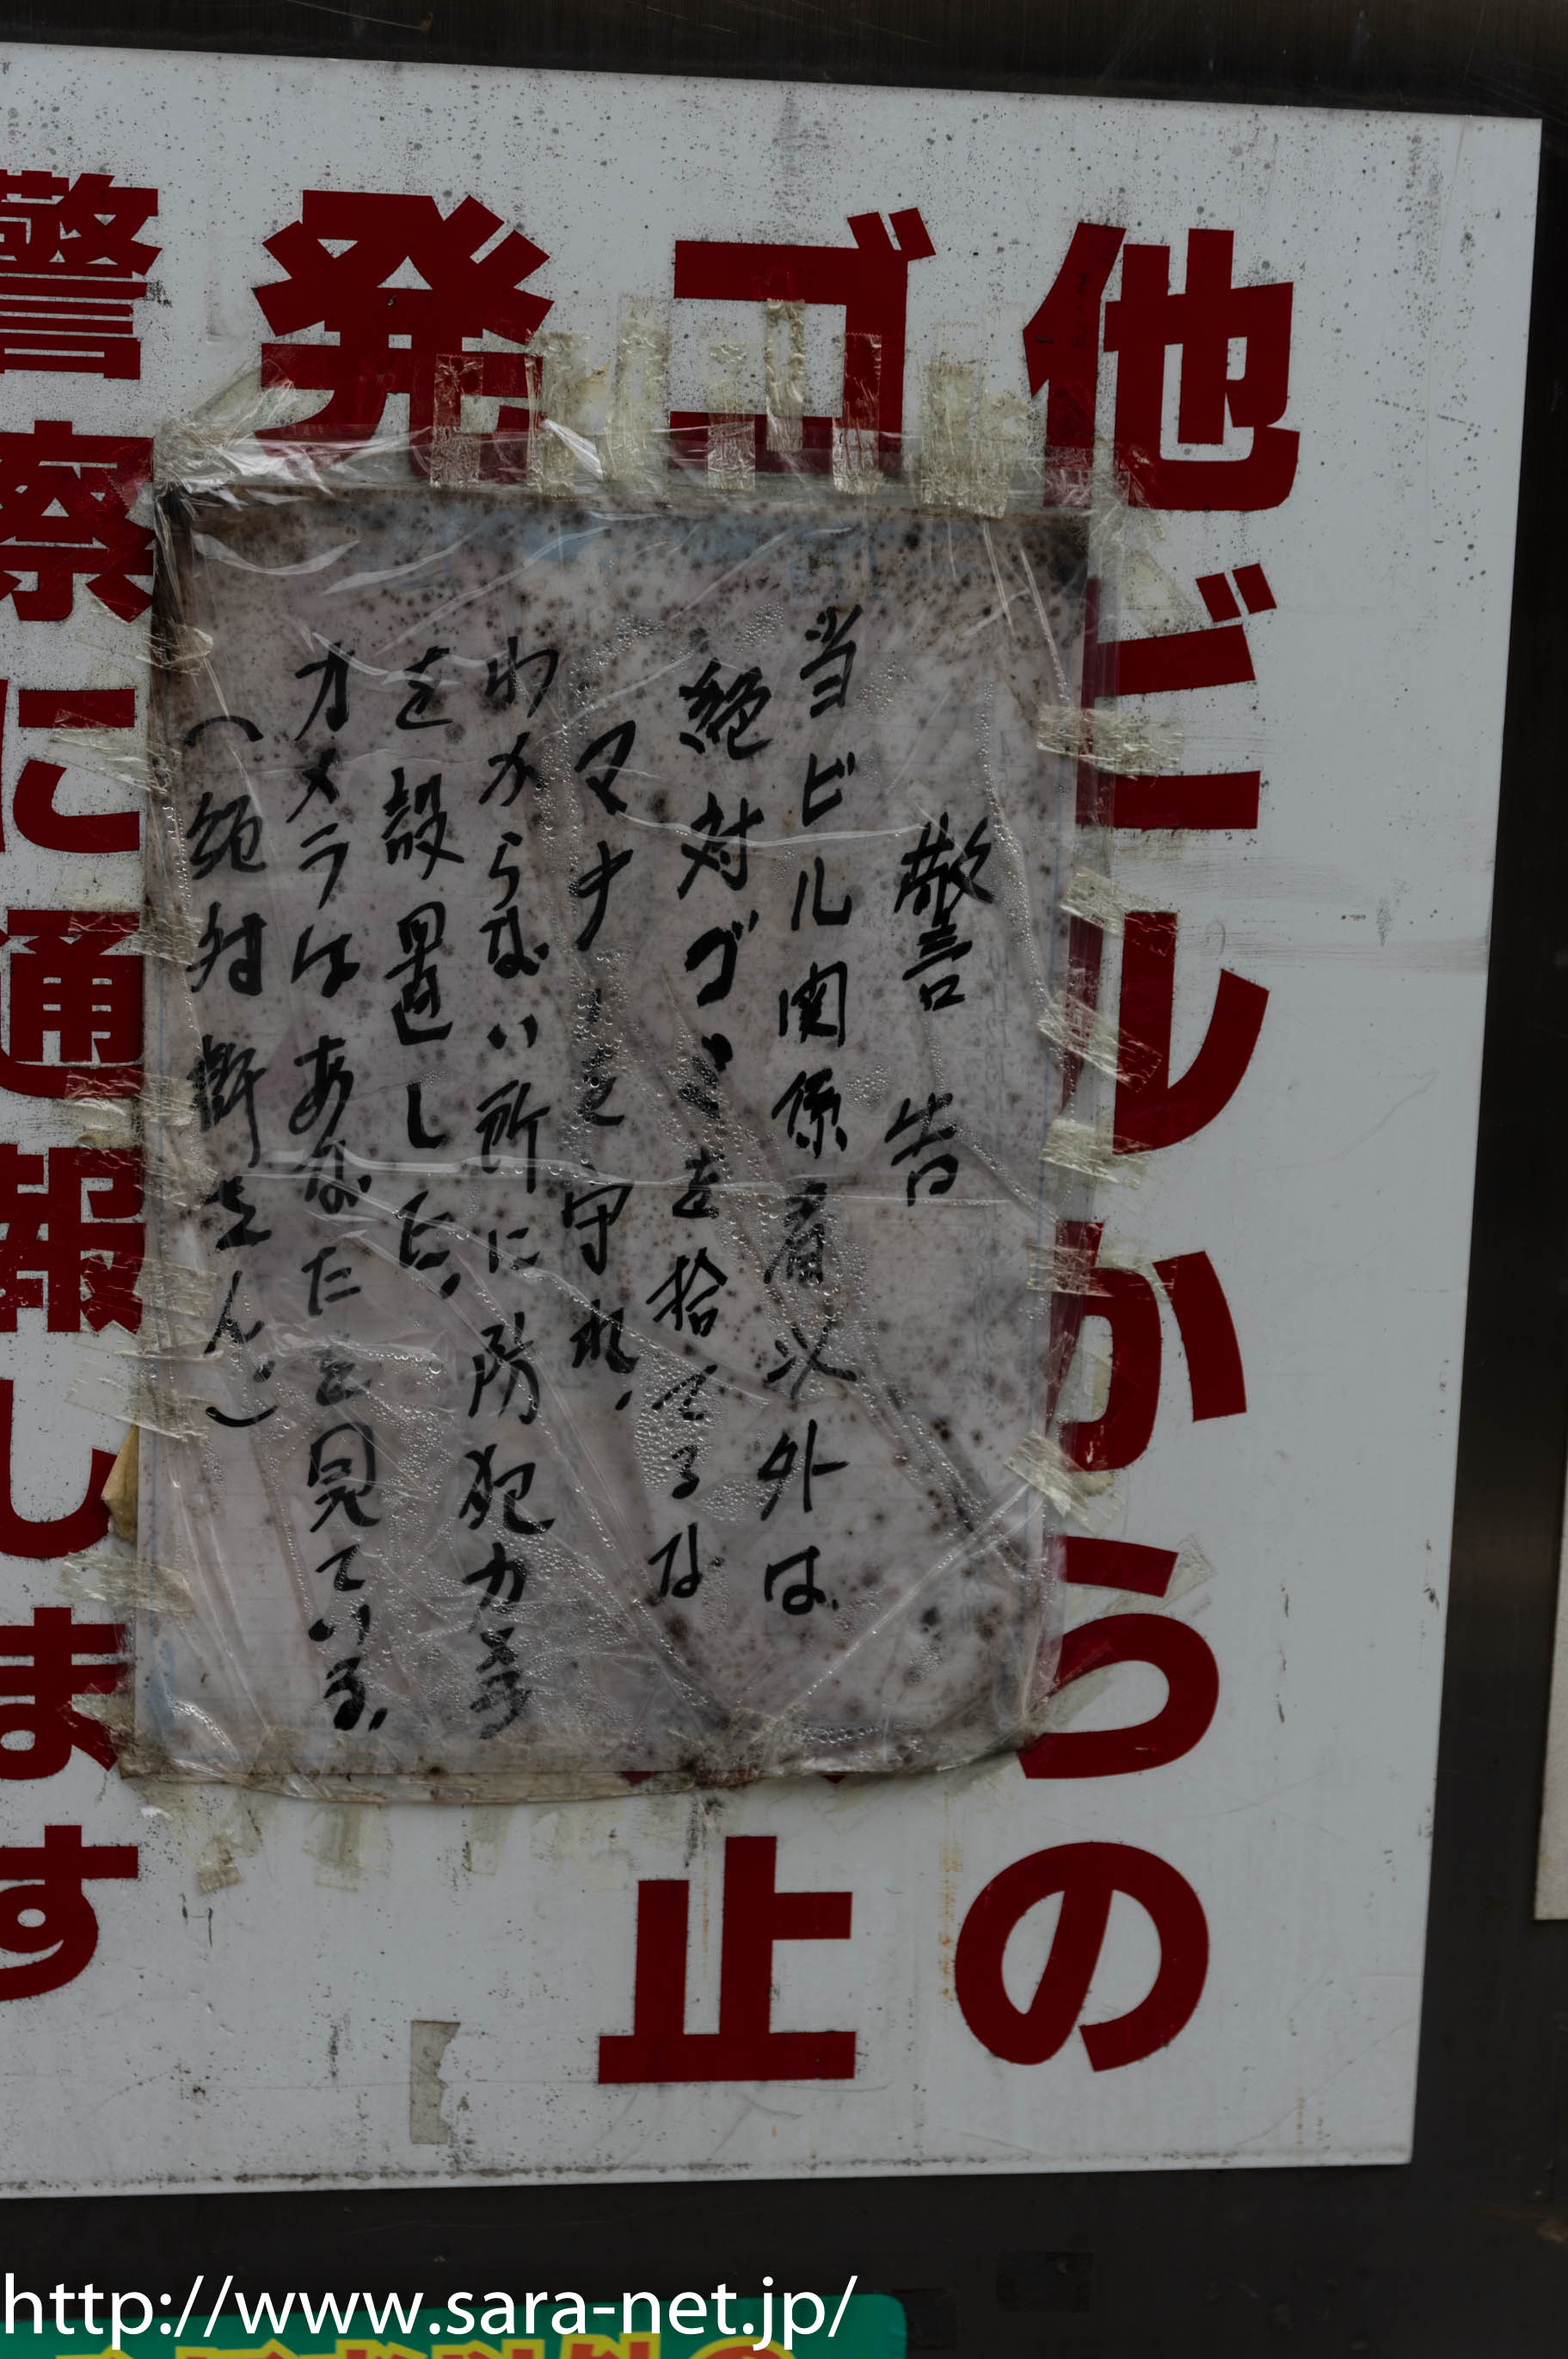 他ビルからの
ゴ
止
発
警察に通報します
警告
当ビル関係者以外は
絶対ゴミを拾てるな
マナーを守れ。
わからない所に防犯カメラ
を設置した。
カメラはあなたを見ている。
(絶対許せん。)
http://www.sara-net.jp/